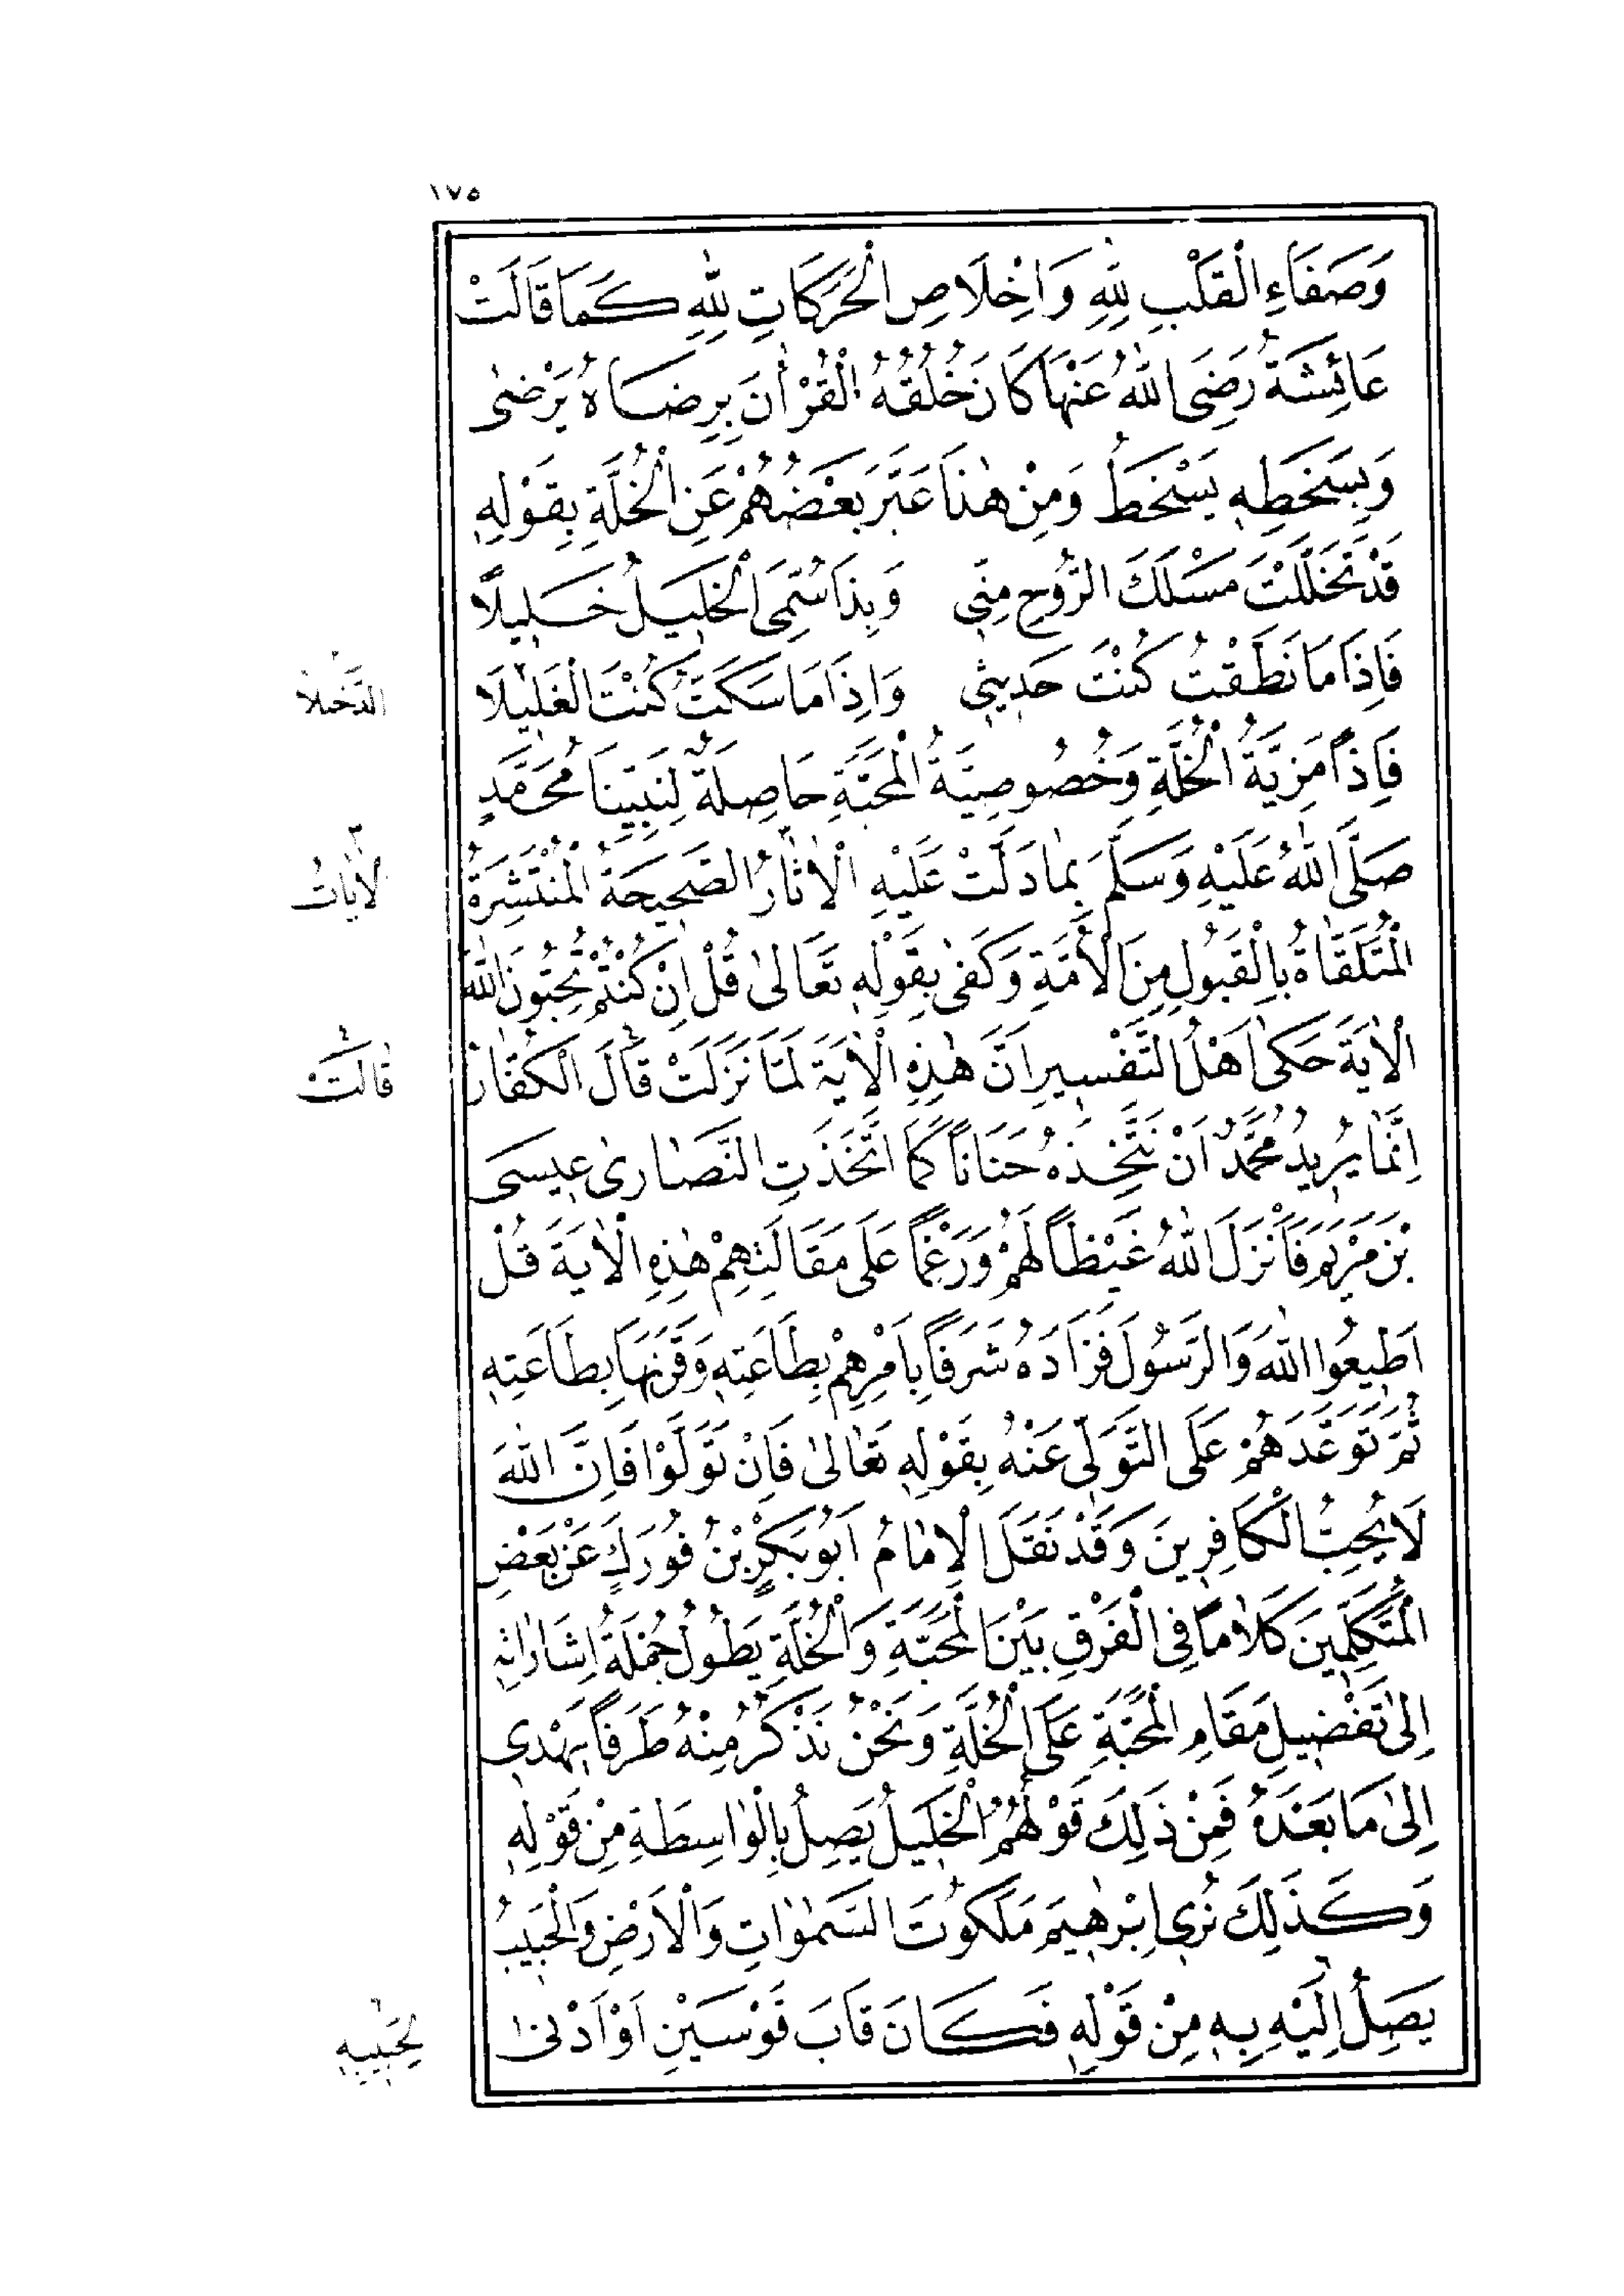 ١٧٥
وَصَفَاءِ الْقَلْبِ لِلّٰهِ وَاِخْلَاصِ الْحَرَكَاتِ لِلّٰهِ كَمَا قَالَتْ
عَائِشَةُ رَضِىَ اللّٰهُ عَنْهَا كَانَ خُلُقُهُ الْقُرْاٰنَ بِرِضَاهُ يَرْضٰى
وَبِسَخَطِهِ يَسْخَطُ وَمِنْ هٰذَا عَبَّرَ بَعْضُهُمْ عَنِ الْخُلَّةِ بِقَوْلِهِ
قَدْ تَخَلَّلْتَ مَسْلَكَ الرُّوحِ مِنِّى وَبِذَا سُمِّىَ الْخَلِيلُ خَلِيلًا
فَاِذَا مَا نَطَقْتُ كُنْتَ حَدِيثِى وَاِذَا مَا سَكَتُّ كُنْتَ الْغَلِيلَا
فَاِذًا مَزِيَّةُ الْخُلَّةِ وَخُصُوصِيَّةُ الْمَحَبَّةِ حَاصِلَةٌ لِنَبِيِّنَا مُحَمَّدٍ
صَلَّى اللّٰهُ عَلَيْهِ وَسَلَّمَ بِمَا دَلَّتْ عَلَيْهِ الْاٰثَارُ الصَّحِيحَةُ الْمُنْتَشِرَةُ
الْمُتَلَقَّاةُ بِالْقَبُولِ مِنَ الْأُمَّةِ وَكَفٰى بِقَوْلِهِ تَعَالٰى قُلْ اِنْ كُنْتُمْ تُحِبُّونَ اللّٰهَ
الْاٰيَةَ حَكٰى اَهْلُ التَّفْسِيرِ اَنَّ هٰذِهِ الْاٰيَةَ لَمَّا نَزَلَتْ قَالَ الْكُفَّارُ
اِنَّمَا يُرِيدُ مُحَمَّدٌ اَنْ نَتَّخِذَهُ حَنَانًا كَمَا اتَّخَذَتِ النَّصَارٰى عِيسَى
بْنَ مَرْيَمَ فَاَنْزَلَ اللّٰهُ غَيْظًا لَهُمْ وَرَغْمًا عَلَى مَقَالَتِهِمْ هٰذِهِ الْاٰيَةَ قُلْ
اَطِيعُوا اللّٰهَ وَالرَّسُولَ فَزَادَهُ شَرَفًا بِاَمْرِهِمْ بِطَاعَتِهِ وَقَرَنَهَا بِطَاعَتِهِ
ثُمَّ تَوَعَّدَهُمْ عَلَى التَّوَلِّى عَنْهُ بِقَوْلِهِ تَعَالٰى فَاِنْ تَوَلَّوْا فَاِنَّ اللّٰهَ
لَا يُحِبُّ الْكَافِرِينَ وَقَدْ نَقَلَ الْاِمَامُ اَبُو بَكْرِ بْنُ فُورَكٍ عَنْ بَعْضِ
الْمُتَكَلِّمِينَ كَلَامًا فِى الْفَرْقِ بَيْنَ الْمَحَبَّةِ وَالْخُلَّةِ يَطُولُ جُمْلَةُ اِشَارَاتِهِ
اِلٰى تَفْضِيلِ مَقَامِ الْمَحَبَّةِ عَلَى الْخُلَّةِ وَنَحْنُ نَذْكُرُ مِنْهُ طَرَفًا يَهْدِى
اِلٰى مَا بَعْدَهُ فَمِنْ ذٰلِكَ قَوْلُهُمُ الْخَلِيلُ يَصِلُ بِالْوَاسِطَةِ مِنْ قَوْلِهِ
وَكَذٰلِكَ نُرِى اِبْرٰهِيمَ مَلَكُوتَ السَّمٰوَاتِ وَالْاَرْضِ وَالْحَبِيبُ
يَصِلُ اِلَيْهِ بِهِ مِنْ قَوْلِهِ فَكَانَ قَابَ قَوْسَيْنِ اَوْ اَدْنٰى
الدَّخْلَا
الْاٰيَاتُ
قَالَتْ
لِحَبِيبِهِ